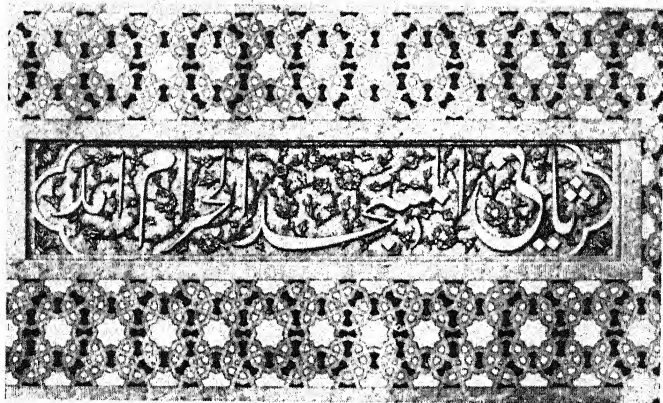 ثانی المسجد الحرام آمد